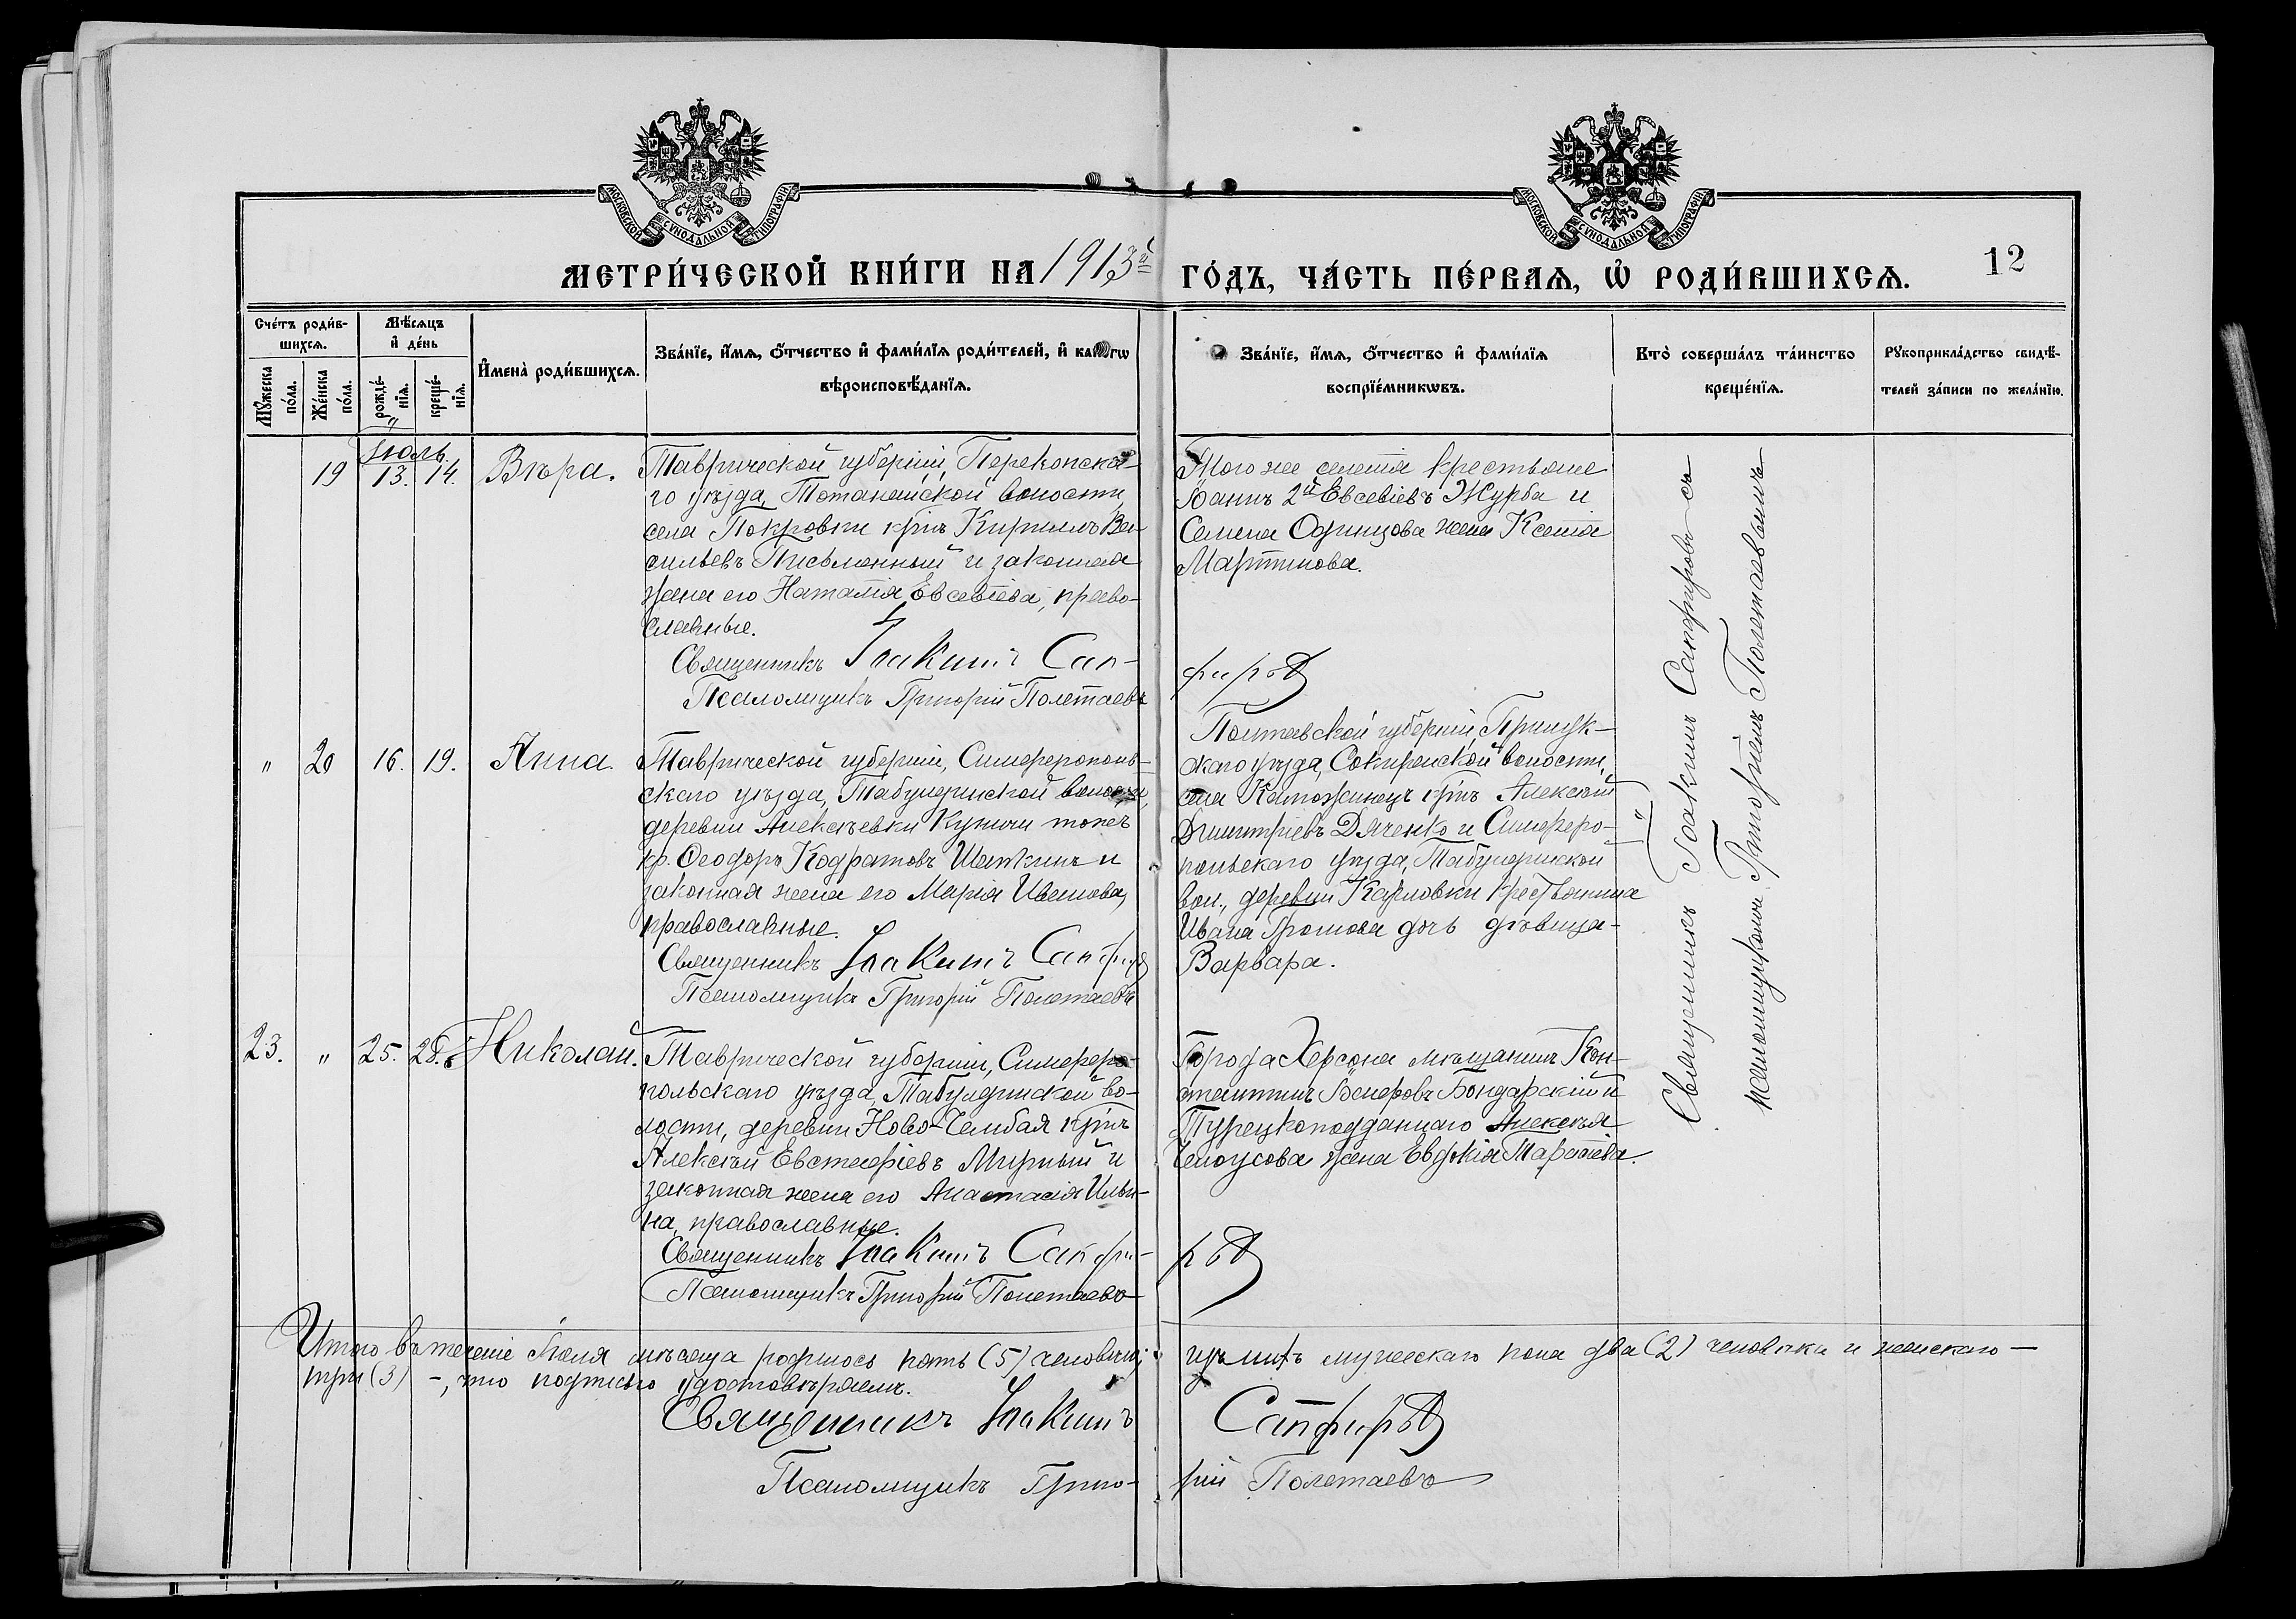 МОСКОВСКОЙ СѴНОДАЛЬНОЙ ТИПОГРАФІИ
МОСКОВСКОЙ СѴНОДАЛЬНОЙ ТИПОГРАФІИ
МЕТРИ́ЧЕСКОЙ КНИ́ГИ НА 1913й ГО́ДЪ, ЧА́СТЬ ПЕ́РВАѦ, Ѡ҆ РОДИ́ВШИХСѦ.
12
Сче́тъ роди́в-
шихсѧ.
Мꙋ́жеска по́ла.
Же́нска по́ла.
Мѣ́сѧцъ
и҆ де́нь
рожде́-
нїѧ.
креще́-
нїѧ.
И҆мена̀ роди́вшихсѧ.
Зва́нїе, и҆́мѧ, ѻ҆́тчество и҆ фами́лїѧ роди́телей, и҆ како́гѡ
вѣроисповѣ́данїѧ.
Зва́нїе, и҆́мѧ, ѻ҆́тчество и҆ фами́лїѧ
воспрїе́мникѡвъ.
Кто̀ соверша́лъ та́инство
креще́нїѧ.
Рꙋкоприкла́дство свидѣ́-
телей за́писи по жела́нїю.
Іюль.
19 13. 14. Вѣра.
Таврической губерніи, Перекопска-
го уѣзда, Тотанайской волости,
села Покровки кр-нъ Кириллъ Ва-
сильевъ Письменный и законная
жена его Наталія Евсевіева, право-
славные.
Священникъ Іоакимъ Сап-
фировъ
Псаломщикъ Григорій Полетаевъ
Того же селенія крестьяне
Іоаннъ 2й Евсевіевъ Журба и
Семена Одинцова жена Ксенія
Мартинова.
" 20 16. 19. Анна.
Таврической губерніи, Симферополь-
скаго уѣзда, Табулдинской волости,
деревни Алексѣевки Кучюи тоже
кр. Ѳеодоръ Кодратовъ и
законная жена его Марія Иванова,
православные.
Священникъ Іоакимъ Сапфиров
Псаломщикъ Григорій Полетаевъ
Полтавской губерніи, Прилук-
скаго уѣзда, Сокиренской волости,
села кр-нъ Алексѣй
Димитріевъ Дяченко и Симферо-
польскаго уѣзда, Табулдинской
вол., деревни Карловки крестьянина
Ивана Громова дочь дѣвица-
Варвара.
23. " 25. 28. Николай.
Таврической губерніи, Симферо-
польскаго уѣзда, Табулдинской во-
лости, деревни Ново-Челебая кр-нъ
Алексѣй Евстафіевъ Мирный и
законная жена его Анастасія Ильи-
на, православные.
Священникъ Іоакимъ Сапфи-
ровъ
Псаломщикъ Григорій Полетаевъ
Города Херсона мѣщанинъ Кон-
стантинъ Бондарскій и
Турецкоподданнаго Алексѣя
жена Евдокія
Священникъ Іоакимъ Сапфировъ съ
псаломщикомъ Григоріемъ Полетаевымъ
"
Итого въ теченіе Іюля мѣсяца родилось пять (5) человѣкъ; изъ нихъ мужескаго пола два (2) человѣка и женскаго —
три (3) –, что подписью удостовѣряемъ.
Священникъ Іоакимъ Сапфировъ
Псаломщикъ Григорій Полетаевъ